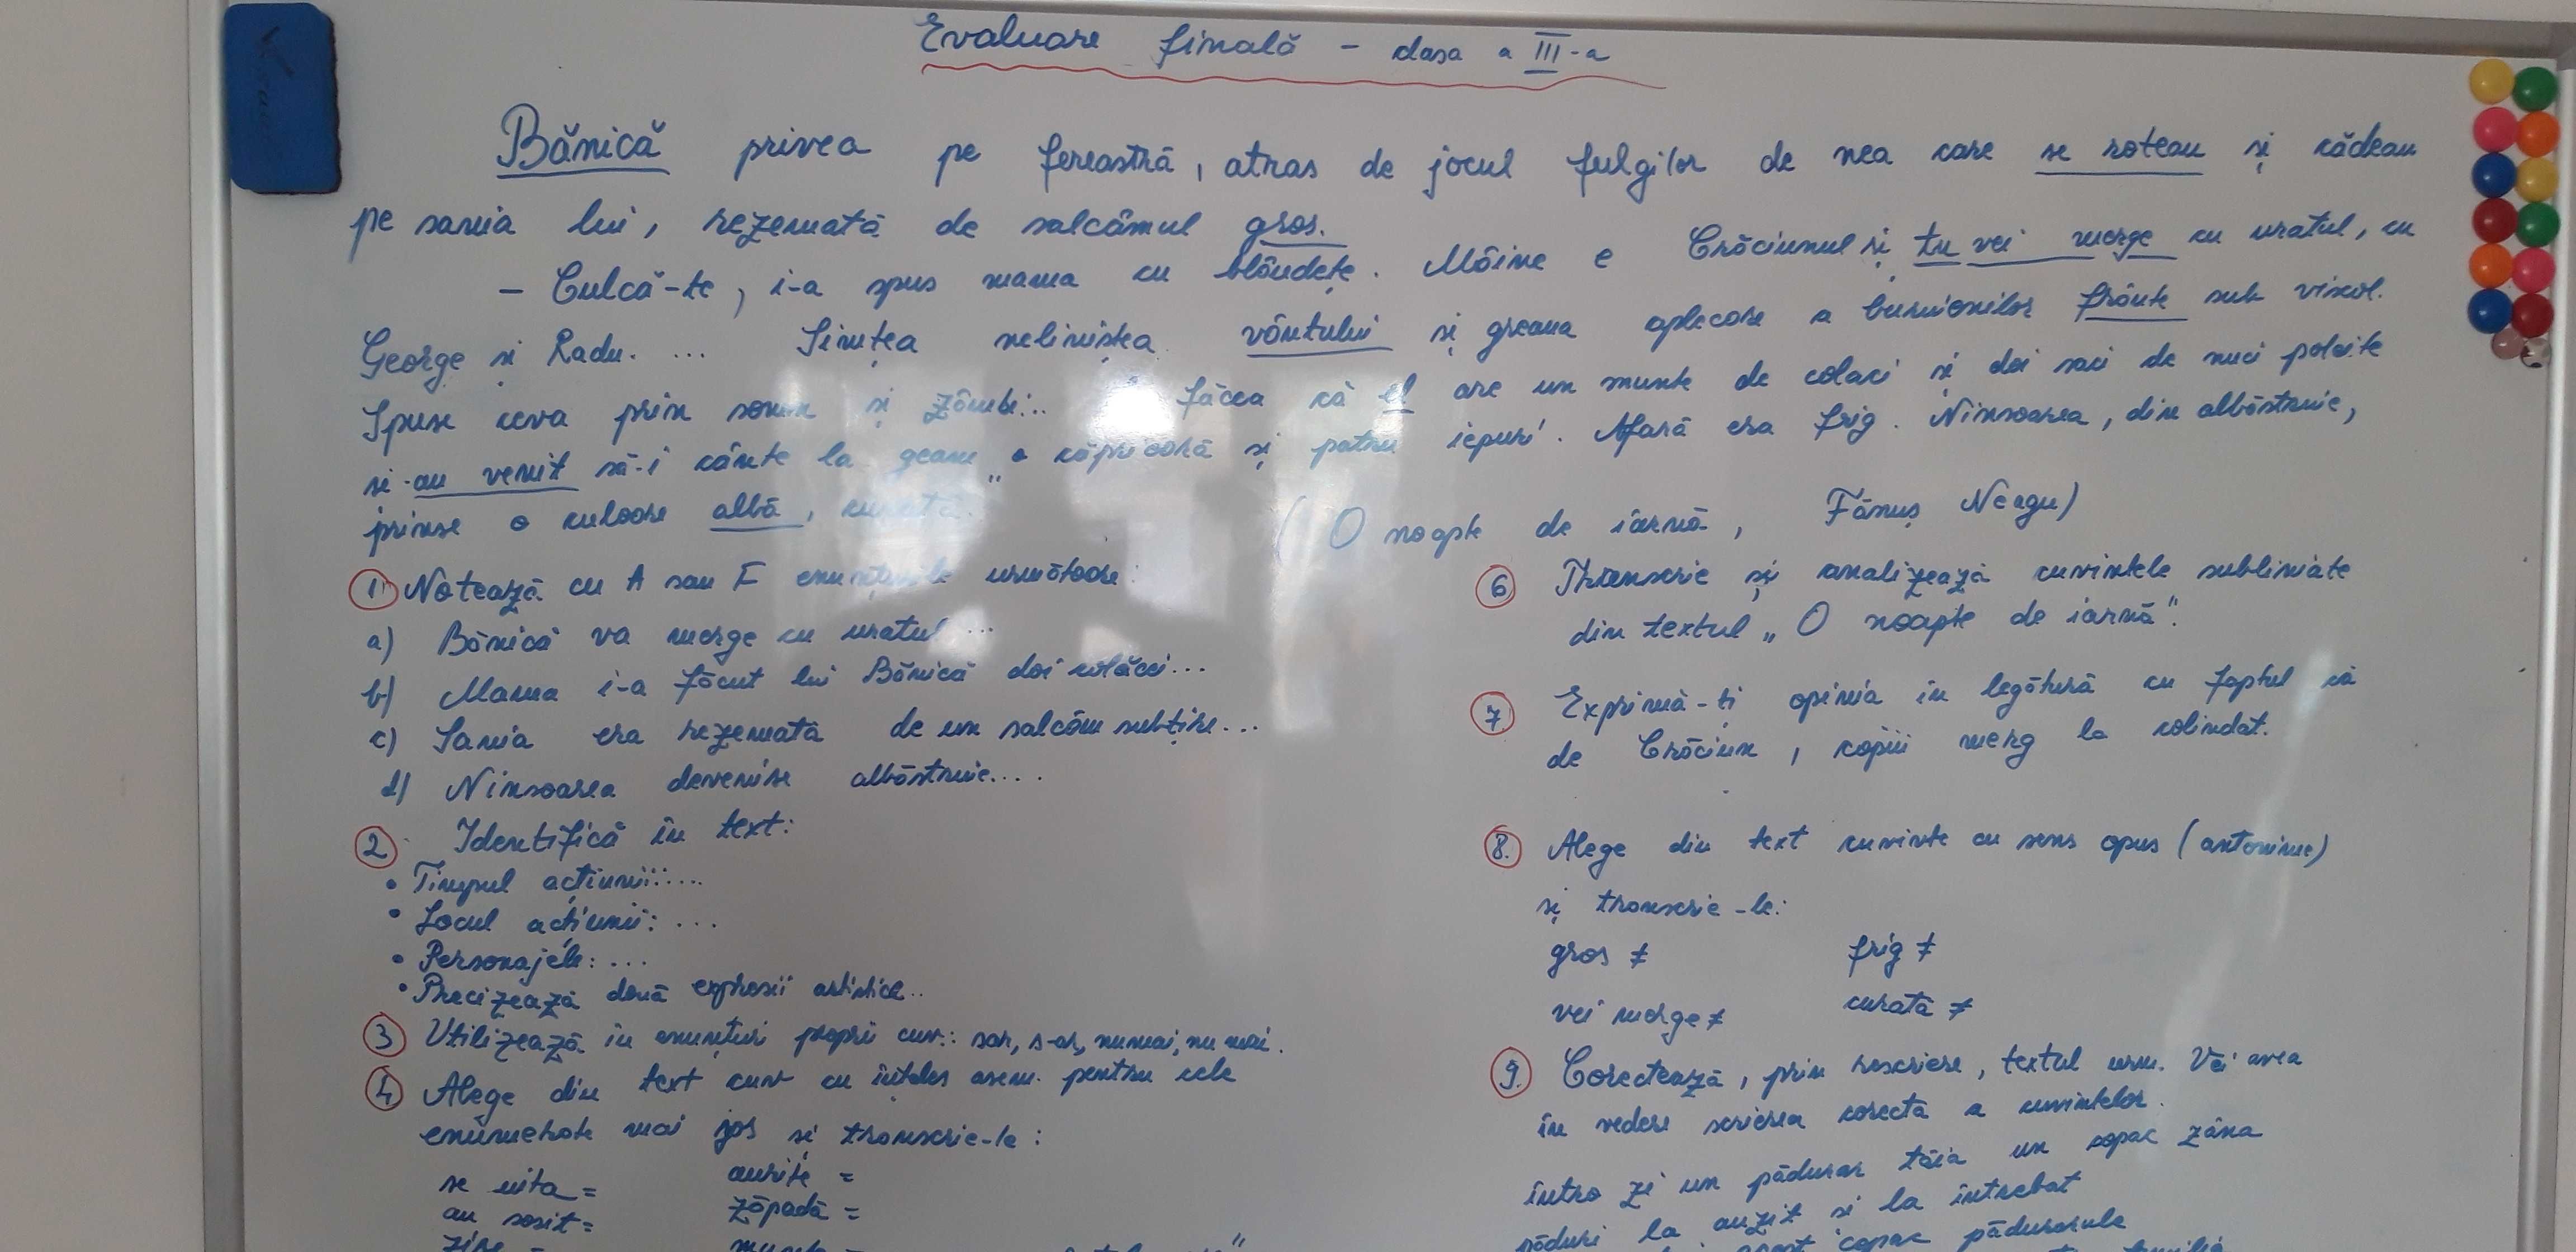 Evaluare finală - clasa a III-a
Bănică privea pe fereastră, atras de jocul fulgilor de nea care se roteau și cădeau
pe sania lui, rezemată de salcâmul gros.
- Culcă-te, i-a spus mama cu blândețe. Mâine e Crăciunul și tu vei merge cu uratul, cu
George și Radu. ... Simțea neliniștea vântului și greaua aplecare a burienilor frânte sub viscol.
Spuse ceva prin somn și zâmbi... făcea că el are un munte de colaci și doi saci de nuci poleite
și-au venit să-i cânte la geam o căprioară și patru iepuri. Afară era frig. Ninsoarea, din albăstruie,
prinse o culoare albă, curată."
(O noapte de iarnă, Fănuș Neagu)
1 Notează cu A sau F enunțurile următoare:
a) Bănică va merge cu uratul ...
b) Mama i-a făcut lui Bănică doi colăcei...
c) Sania era rezemată de un salcâm subțire...
d) Ninsoarea devenise albăstruie....
2 Identifică în text:
• Timpul acțiunii:....
• Locul acțiunii: ...
• Personajele: ...
• Precizează două expresii artistice..
3 Utilizează în enunțuri proprii cuv.: sar, s-ar, numai, nu mai.
4 Alege din text cuv cu înțeles asem. pentru cele
enumerate mai jos și transcrie-le:
se uita = aurite =
au sosit = zăpadă =
zise =
6 Transcrie și analizează cuvintele subliniate
din textul „O noapte de iarnă".
7 Exprimă-ți opinia în legătură cu faptul că
de Crăciun, copiii merg la colindat.
8. Alege din text cuvinte cu sens opus (antonime)
și transcrie-le:
gros ≠ frig ≠
vei merge ≠ curată ≠
9. Corectează, prin rescriere, textul urm. Vei avea
în vedere scrierea corectă a cuvintelor.
întro zi un pădurar tăia un copac zâna
păduri la auzit si la intrebat
acest copac pădurarule